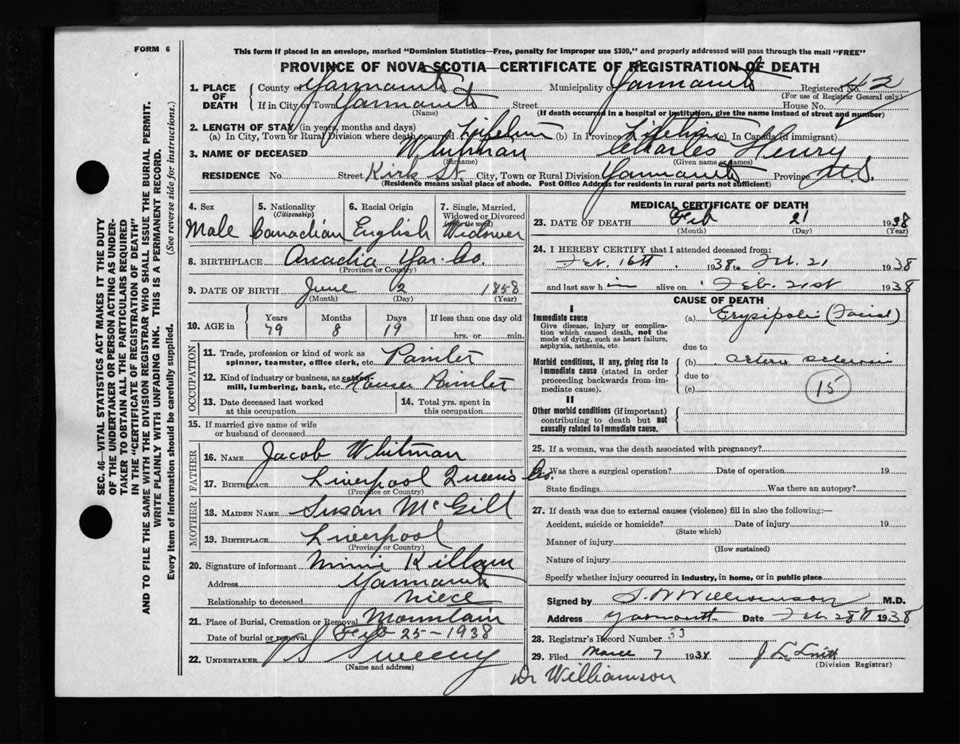 FORM 6
This form if placed in an envelope, marked "Dominion Statistics—Free, penalty for improper use $300," and properly addressed will pass through the mail "FREE"
PROVINCE OF NOVA SCOTIA—CERTIFICATE OF REGISTRATION OF DEATH
1. PLACE OF DEATH
County of Yarmouth Municipality of Yarmouth Registered No. 42
(For use of Registrar General only)
If in City or Town Yarmouth Street House No.
(Name) (If death occurred in a hospital or institution, give the name instead of street and number)
2. LENGTH OF STAY (in years, months and days)
(a) In City, Town or Rural Division where death occurred Lifetime (b) In Province Lifetime (c) In Canada (if immigrant)
3. NAME OF DECEASED Whitman Charles Henry
(Surname) (Given name or names)
RESIDENCE No. Street Kirk St. City, Town or Rural Division Yarmouth Province N.S.
(Residence means usual place of abode. Post Office Address for residents in rural parts not sufficient)
4. Sex Male
5. Nationality (Citizenship) Canadian
6. Racial Origin English
7. Single, Married, Widowed or Divorced Widower
8. BIRTHPLACE Arcadia Yar. Co.
(Province or Country)
9. DATE OF BIRTH June 2 1858
(Month) (Day) (Year)
10. AGE in Years Months Days If less than one day old
79 8 19 hrs. or min.
OCCUPATION
11. Trade, profession or kind of work as spinner, teamster, office clerk, etc. Painter
12. Kind of industry or business, as cotton mill, lumbering, bank, etc. House Painter
13. Date deceased last worked at this occupation
14. Total yrs. spent in this occupation
15. If married give name of wife or husband of deceased
FATHER
16. NAME Jacob Whitman
17. BIRTHPLACE Liverpool Queen's Co.
(Province or Country)
MOTHER
18. MAIDEN NAME Susan McGill
19. BIRTHPLACE Liverpool
(Province or Country)
20. Signature of informant Minni Killam
Address Yarmouth
Relationship to deceased niece
21. Place of Burial, Cremation or Removal Mountain
Date of burial or removal Feb 25 – 1938
22. UNDERTAKER Sweeny
(Name and address)
MEDICAL CERTIFICATE OF DEATH
23. DATE OF DEATH Feb 21 1938
(Month) (Day) (Year)
24. I HEREBY CERTIFY that I attended deceased from:
Feb. 16th 1938 to Feb. 21 1938
and last saw him alive on Feb. 21st 1938
CAUSE OF DEATH
I
Immediate cause
Give disease, injury or complication which caused death, not the mode of dying, such as heart failure, asphyxia, asthenia, etc.
(a) Erysipelas (Facial)
due to
Morbid conditions, if any, giving rise to immediate cause (stated in order proceeding backwards from immediate cause).
(b)
due to
(c)
15
II
Other morbid conditions (if important) contributing to death but not causally related to immediate cause.
25. If a woman, was the death associated with pregnancy?
26. Was there a surgical operation? Date of operation 19
State findings Was there an autopsy?
27. If death was due to external causes (violence) fill in also the following:—
Accident, suicide or homicide? Date of injury 19
(State which)
Manner of injury
(How sustained)
Nature of injury
Specify whether injury occurred in industry, in home, or in public place
Signed by Williamson M.D.
Address Yarmouth Date Feb. 28th 1938
28. Registrar's Record Number 33
29. Filed March 7 1938
(Division Registrar)
Dr Williamson
SEC. 46—VITAL STATISTICS ACT MAKES IT THE DUTY
OF THE UNDERTAKER OR PERSON ACTING AS UNDER-
TAKER TO OBTAIN ALL THE PARTICULARS REQUIRED
IN THE "CERTIFICATE OF REGISTRATION OF DEATH"
AND TO FILE THE SAME WITH THE DIVISION REGISTRAR WHO SHALL ISSUE THE BURIAL PERMIT.
WRITE PLAINLY WITH UNFADING INK. THIS IS A PERMANENT RECORD.
Every item of information should be carefully supplied. (See reverse side for instructions.)